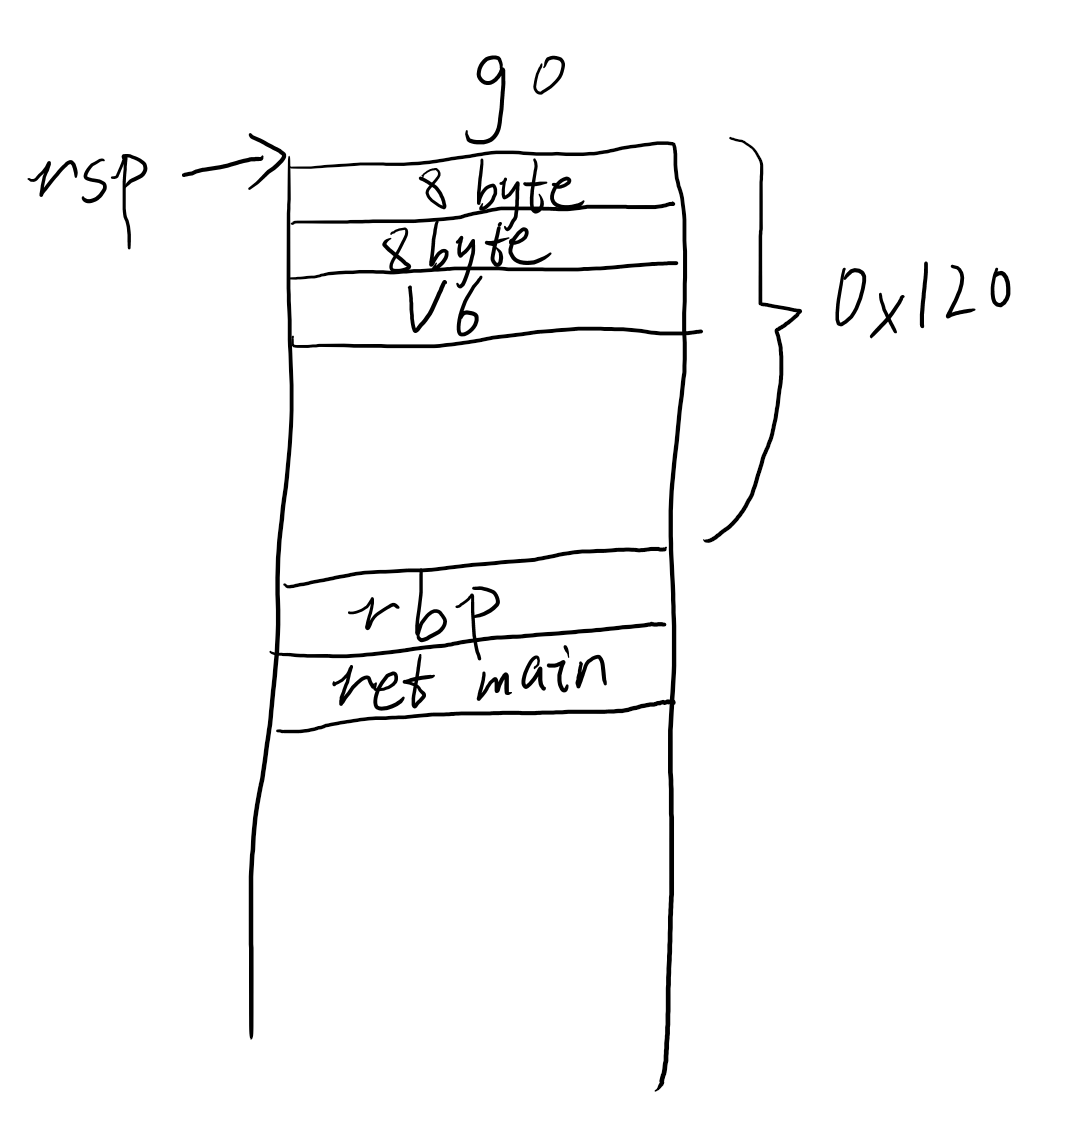 go
rsp
8 byte
8 byte
V6
0x120
rbp
ret main